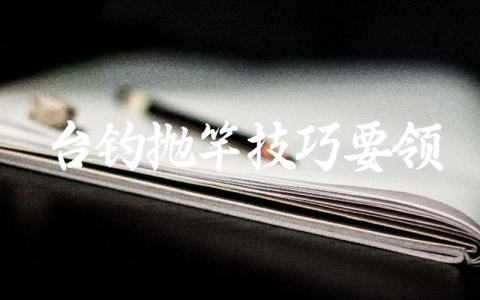 台钓抛竿技巧要领